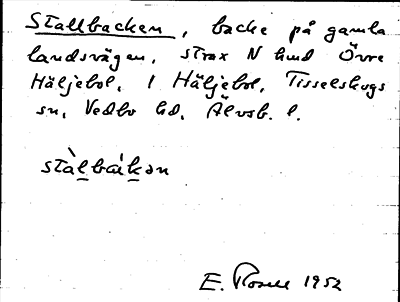 Stallbacken, backe på gamla
landsvägen, strax N hmd Övre
Häljebol, 1 Häljebol, Tisselskogs
sn, Vedbo hd, Älvsb. l.
stàlbákən
E. 1952